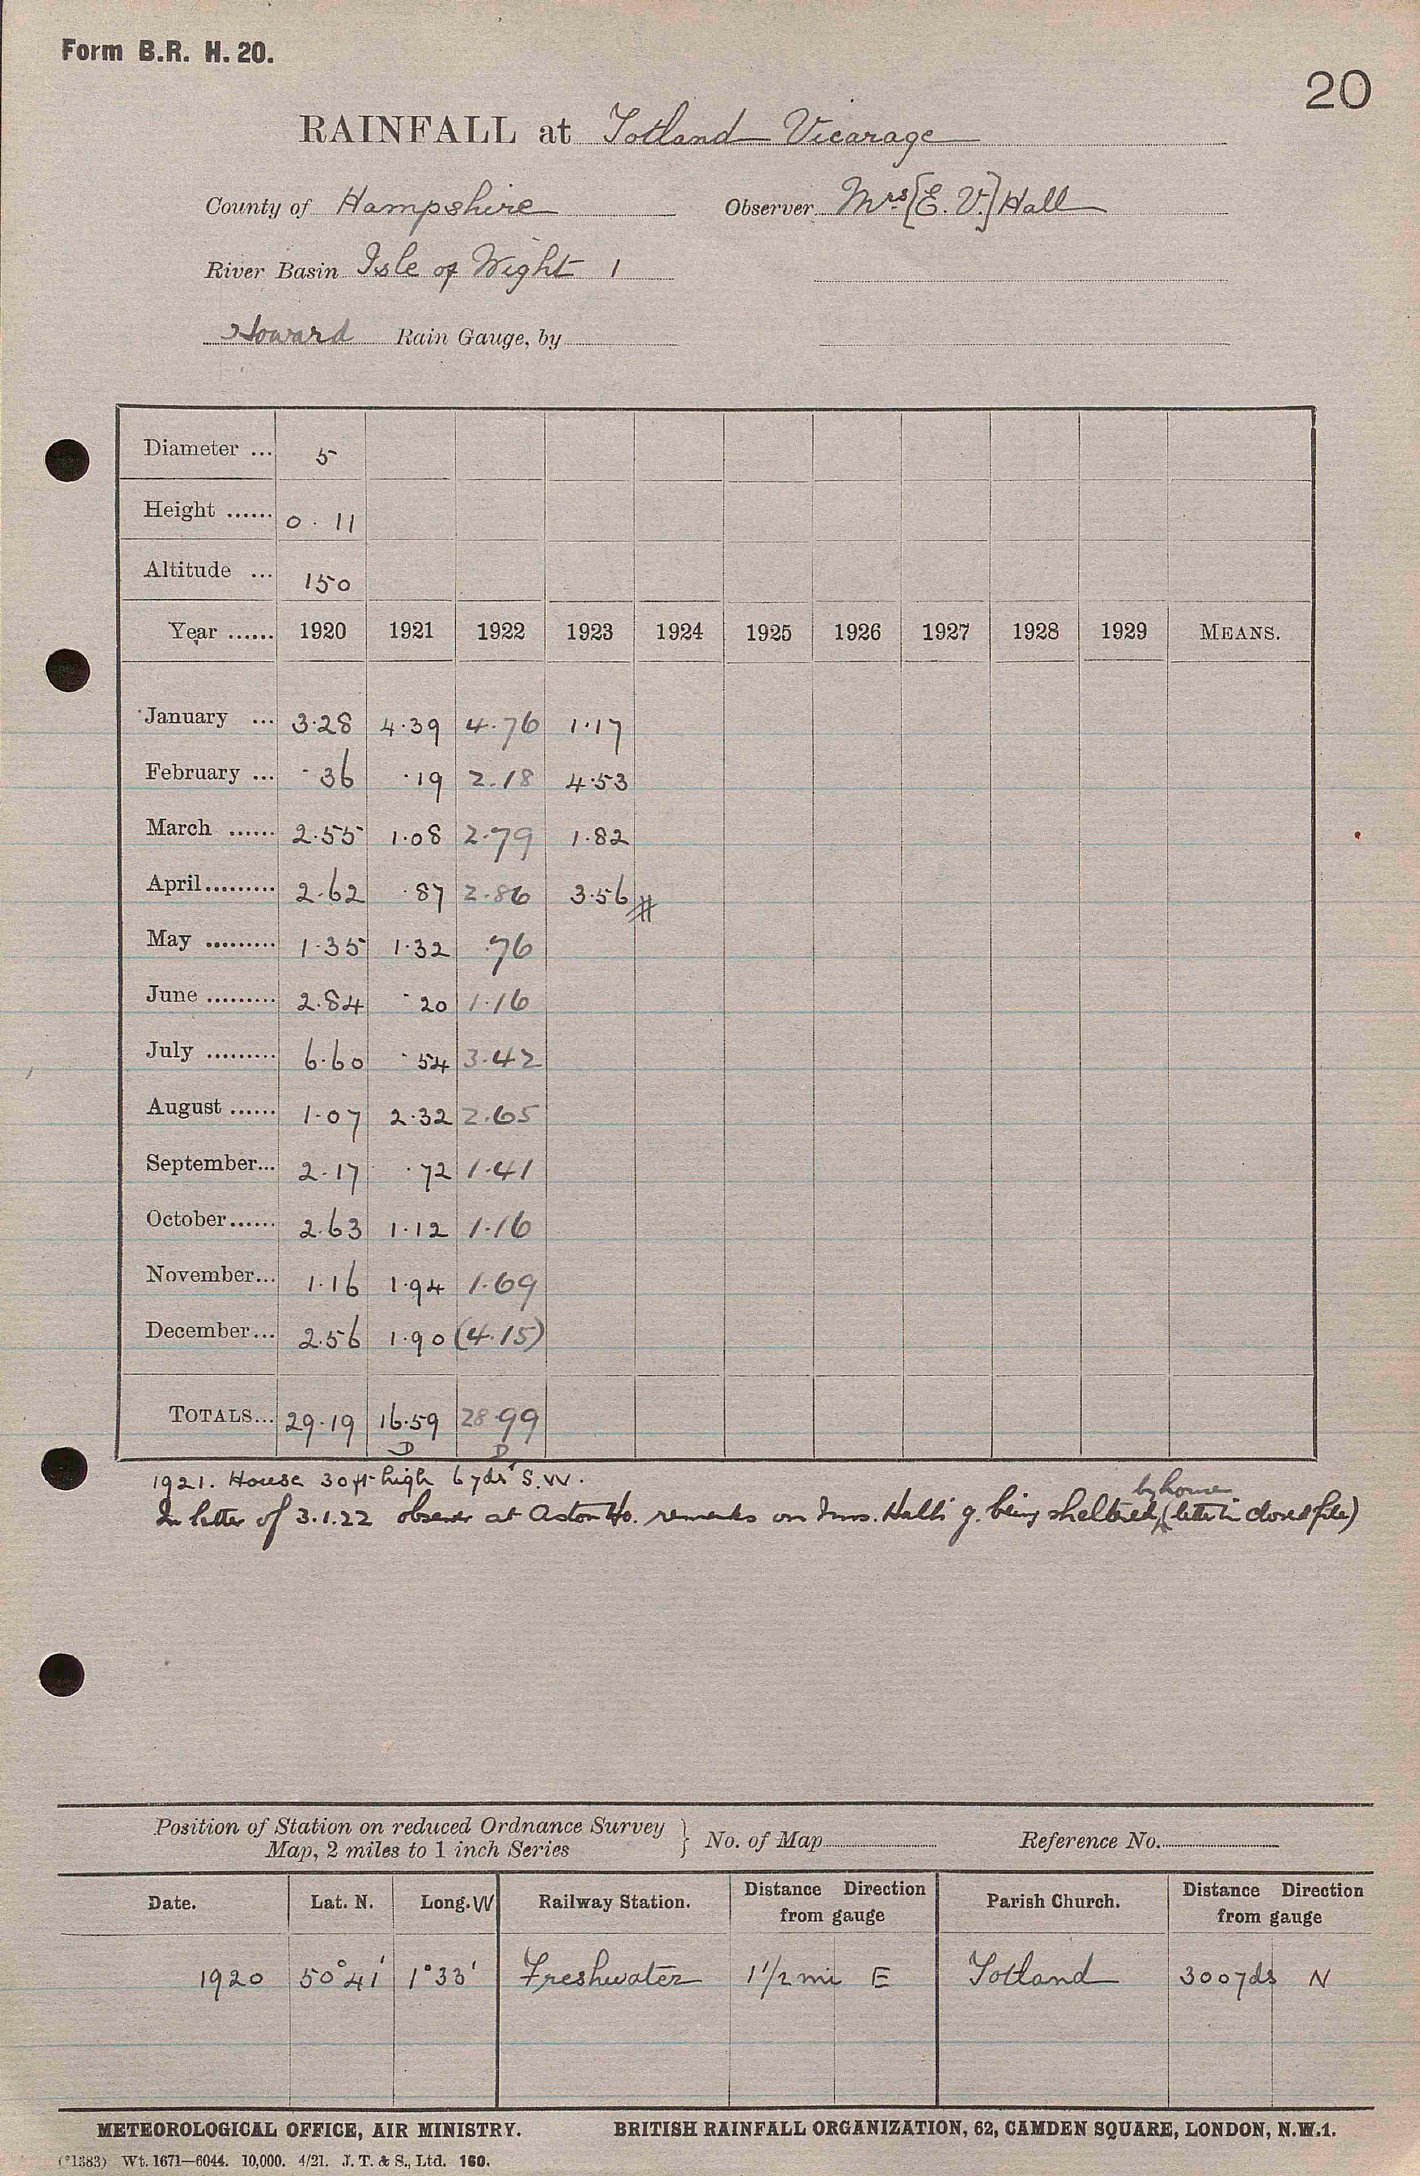 Form B.R. H. 20.
20
RAINFALL at Totland Vicarage
County of Hampshire Observer Mrs [E. V.] Hall
River Basin Isle of Wight 1
Howard Rain Gauge, by
Diameter ... 5
Height ...... 0 . 11
Altitude ... 150
Year ...... 1920 1921 1922 1923 1924 1925 1926 1927 1928 1929 MEANS.
January ... 3.28 4.39 4.76 1.17
February ... .36 .19 2.18 4.53
March ...... 2.55 1.08 2.79 1.82
April......... 2.62 .87 2.86 3.56 #
May ......... 1.35 1.32 .76
June ......... 2.84 .20 1.16
July ......... 6.60 .54 3.42
August ...... 1.07 2.32 2.65
September... 2.17 .72 1.41
October...... 2.63 1.12 1.16
November... 1.16 1.94 1.69
December... 2.56 1.90 (4.15)
TOTALS... 29.19 16.59 28.99
D D
1921. House 30 ft high 6 yds S.W.
by house
In letter of 3.1.22 observer at Aston Ho. remarks on Mrs. Hall's g. being sheltered, (letter in closed file)
Position of Station on reduced Ordnance Survey
Map, 2 miles to 1 inch Series } No. of Map Reference No.
Date. Lat. N. Long. W Railway Station. Distance Direction from gauge Parish Church. Distance Direction from gauge
1920 50° 41' 1° 33' Freshwater 1 1/2 mi E Totland 300 yds N
METEOROLOGICAL OFFICE, AIR MINISTRY. BRITISH RAINFALL ORGANIZATION, 62, CAMDEN SQUARE, LONDON, N.W.1.
(*1383) Wt. 1671—6044. 10,000. 4/21. J. T. & S., Ltd. 160.